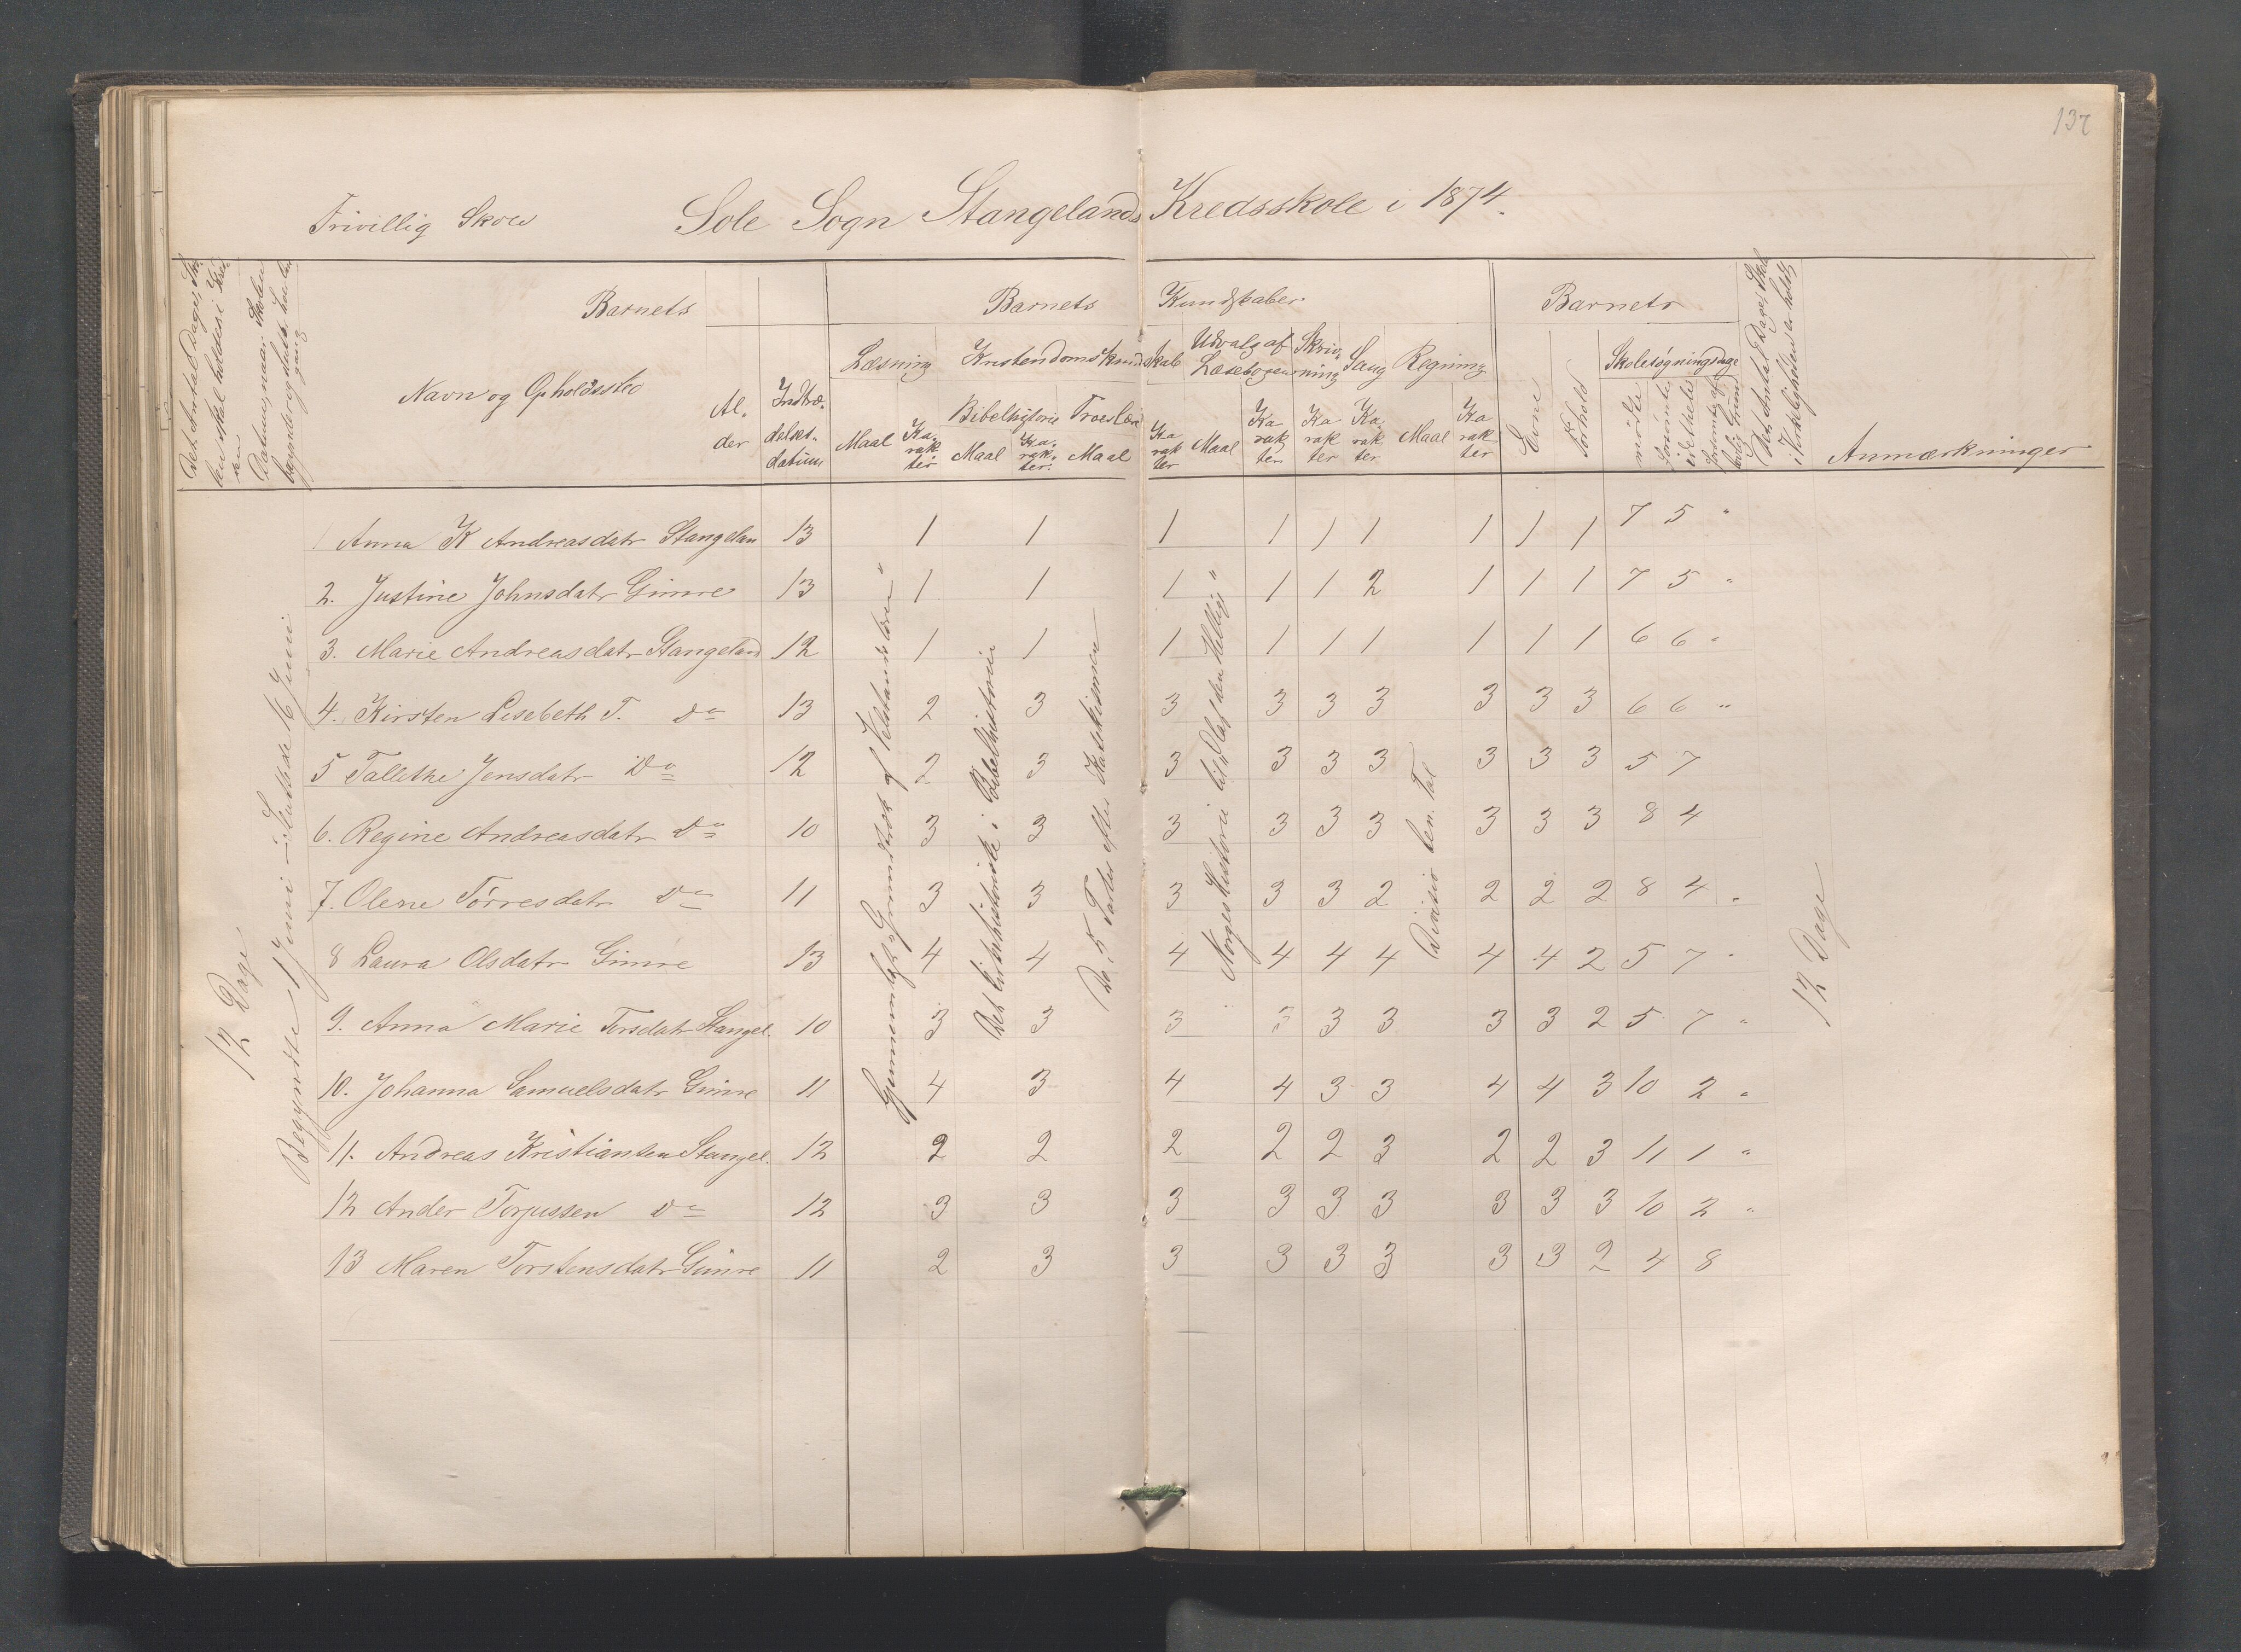 137
Frivillig Skole Sole Sogn Stangelands Kredsskole i 1874.
Barnets Barnets Kundskaber. Barnets
Læsning Kristendomskundskab Udvalg af Læsebogen Skrivning Sang Regning Skolesøgningsdage
Navn og Opholdssted Alder Indtrædelsesdatum
Bibelhistorie Troeslære
Maal Karakter Maal Karakter Maal Karakter Maal Karakter Karakter Karakter Maal Karakter Evne Forhold mødte forsømte i det hele Anmærkninger
Det Antal Dage Skolen skal holdes i Kredsen
Datum, naar Skolen begynder og slutter
Det Antal Dage, Skolen i Virkeligheden er holdt
12 Dage
Begyndte 1 Juni – Sluttede 16 Juni
Det bibelhistoriske i Bibelhistorien
De 5 Parter efter Katekismen
Norges Historie til Olaf den Hellig "
Division ben. Tal
12 Dage
1 Anna K Andreasdatr Stangelan 13 1 1 1 1 1 1 1 1 1 7 5 "
2. Justine Johnsdatr Gimre 13 1 1 1 1 1 2 1 1 1 7 5 "
3. Marie Andreasdatr Stangeland 12 1 1 1 1 1 1 1 1 1 6 6 "
4. Kirsten Lisebeth T. Do 13 2 3 3 3 3 3 3 3 3 6 6 "
5 Tallethe Jensdatr Do 12 2 3 3 3 3 3 3 3 3 5 7
6. Regine Andreasdatr Do 10 3 3 3 3 3 3 3 3 3 8 4
7. Olene Tørresdatr Do 11 3 3 3 3 3 2 2 2 2 8 4 "
8 Laura Olsdatr Gimre 13 4 4 4 4 4 4 4 4 2 5 7 "
9. Anna Marie Torsdatr Stangel. 10 3 3 3 3 3 3 3 3 2 5 7 "
10. Johanna Samuelsdatr Gimre 11 4 3 4 4 3 3 4 4 3 10 2 "
11. Andreas Kristiansen Stangel. 12 2 2 2 2 2 3 2 2 3 11 1 "
12 Ander Torjussen Do 12 3 3 3 3 3 3 3 3 3 10 2 "
13 Maren Torstensdatr Gimre 11 2 3 3 3 3 3 3 3 2 4 8